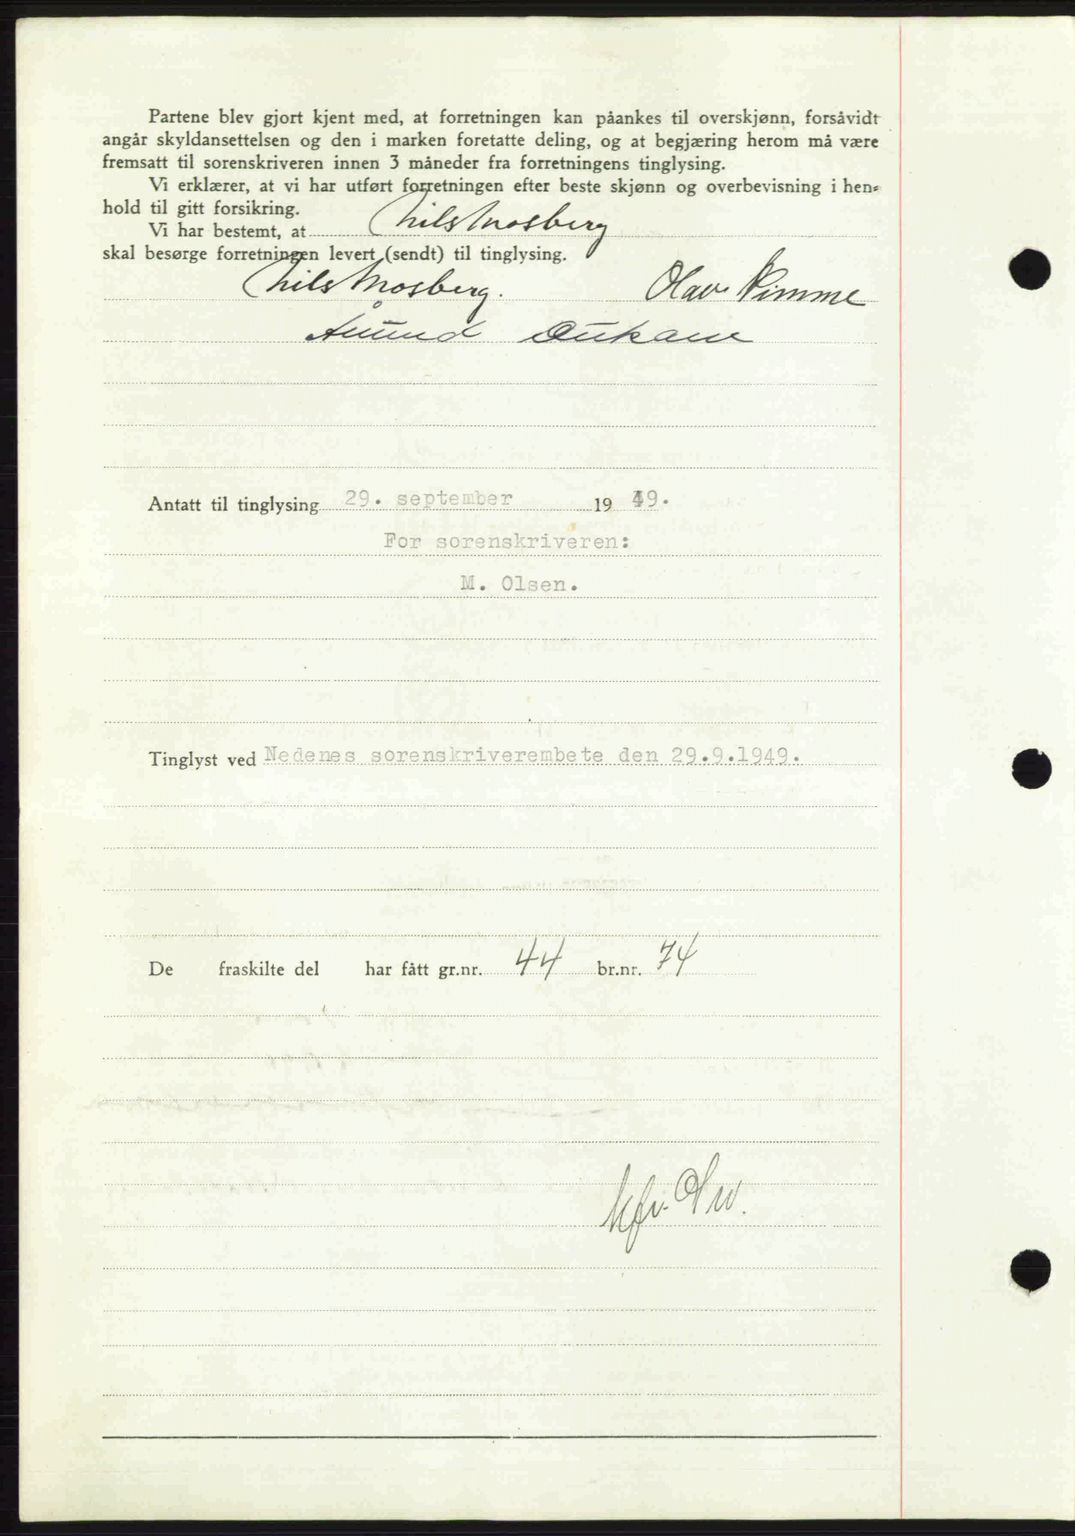 Partene blev gjort kjent med, at forretningen kan påankes til overskjønn, forsåvidt
angår skyldansettelsen og den i marken foretatte deling, og at begjæring herom må være
fremsatt til sorenskriveren innen 3 måneder fra forretningens tinglysing.
Vi erklærer, at vi har utført forretningen efter beste skjønn og overbevisning i hen-
hold til gitt forsikring.
Vi har bestemt, at Nils Mosberg
skal besørge forretningen levert (sendt) til tinglysing.
Nils Mosberg. Olav Rimme
Åmund
Antatt til tinglysing 29. september 19 49.
For sorenskriveren:
M. Olsen.
Tinglyst ved Nedenes sorenskriverembete den 29.9.1949.
De fraskilte del har fått gr.nr. 44 br.nr. 74